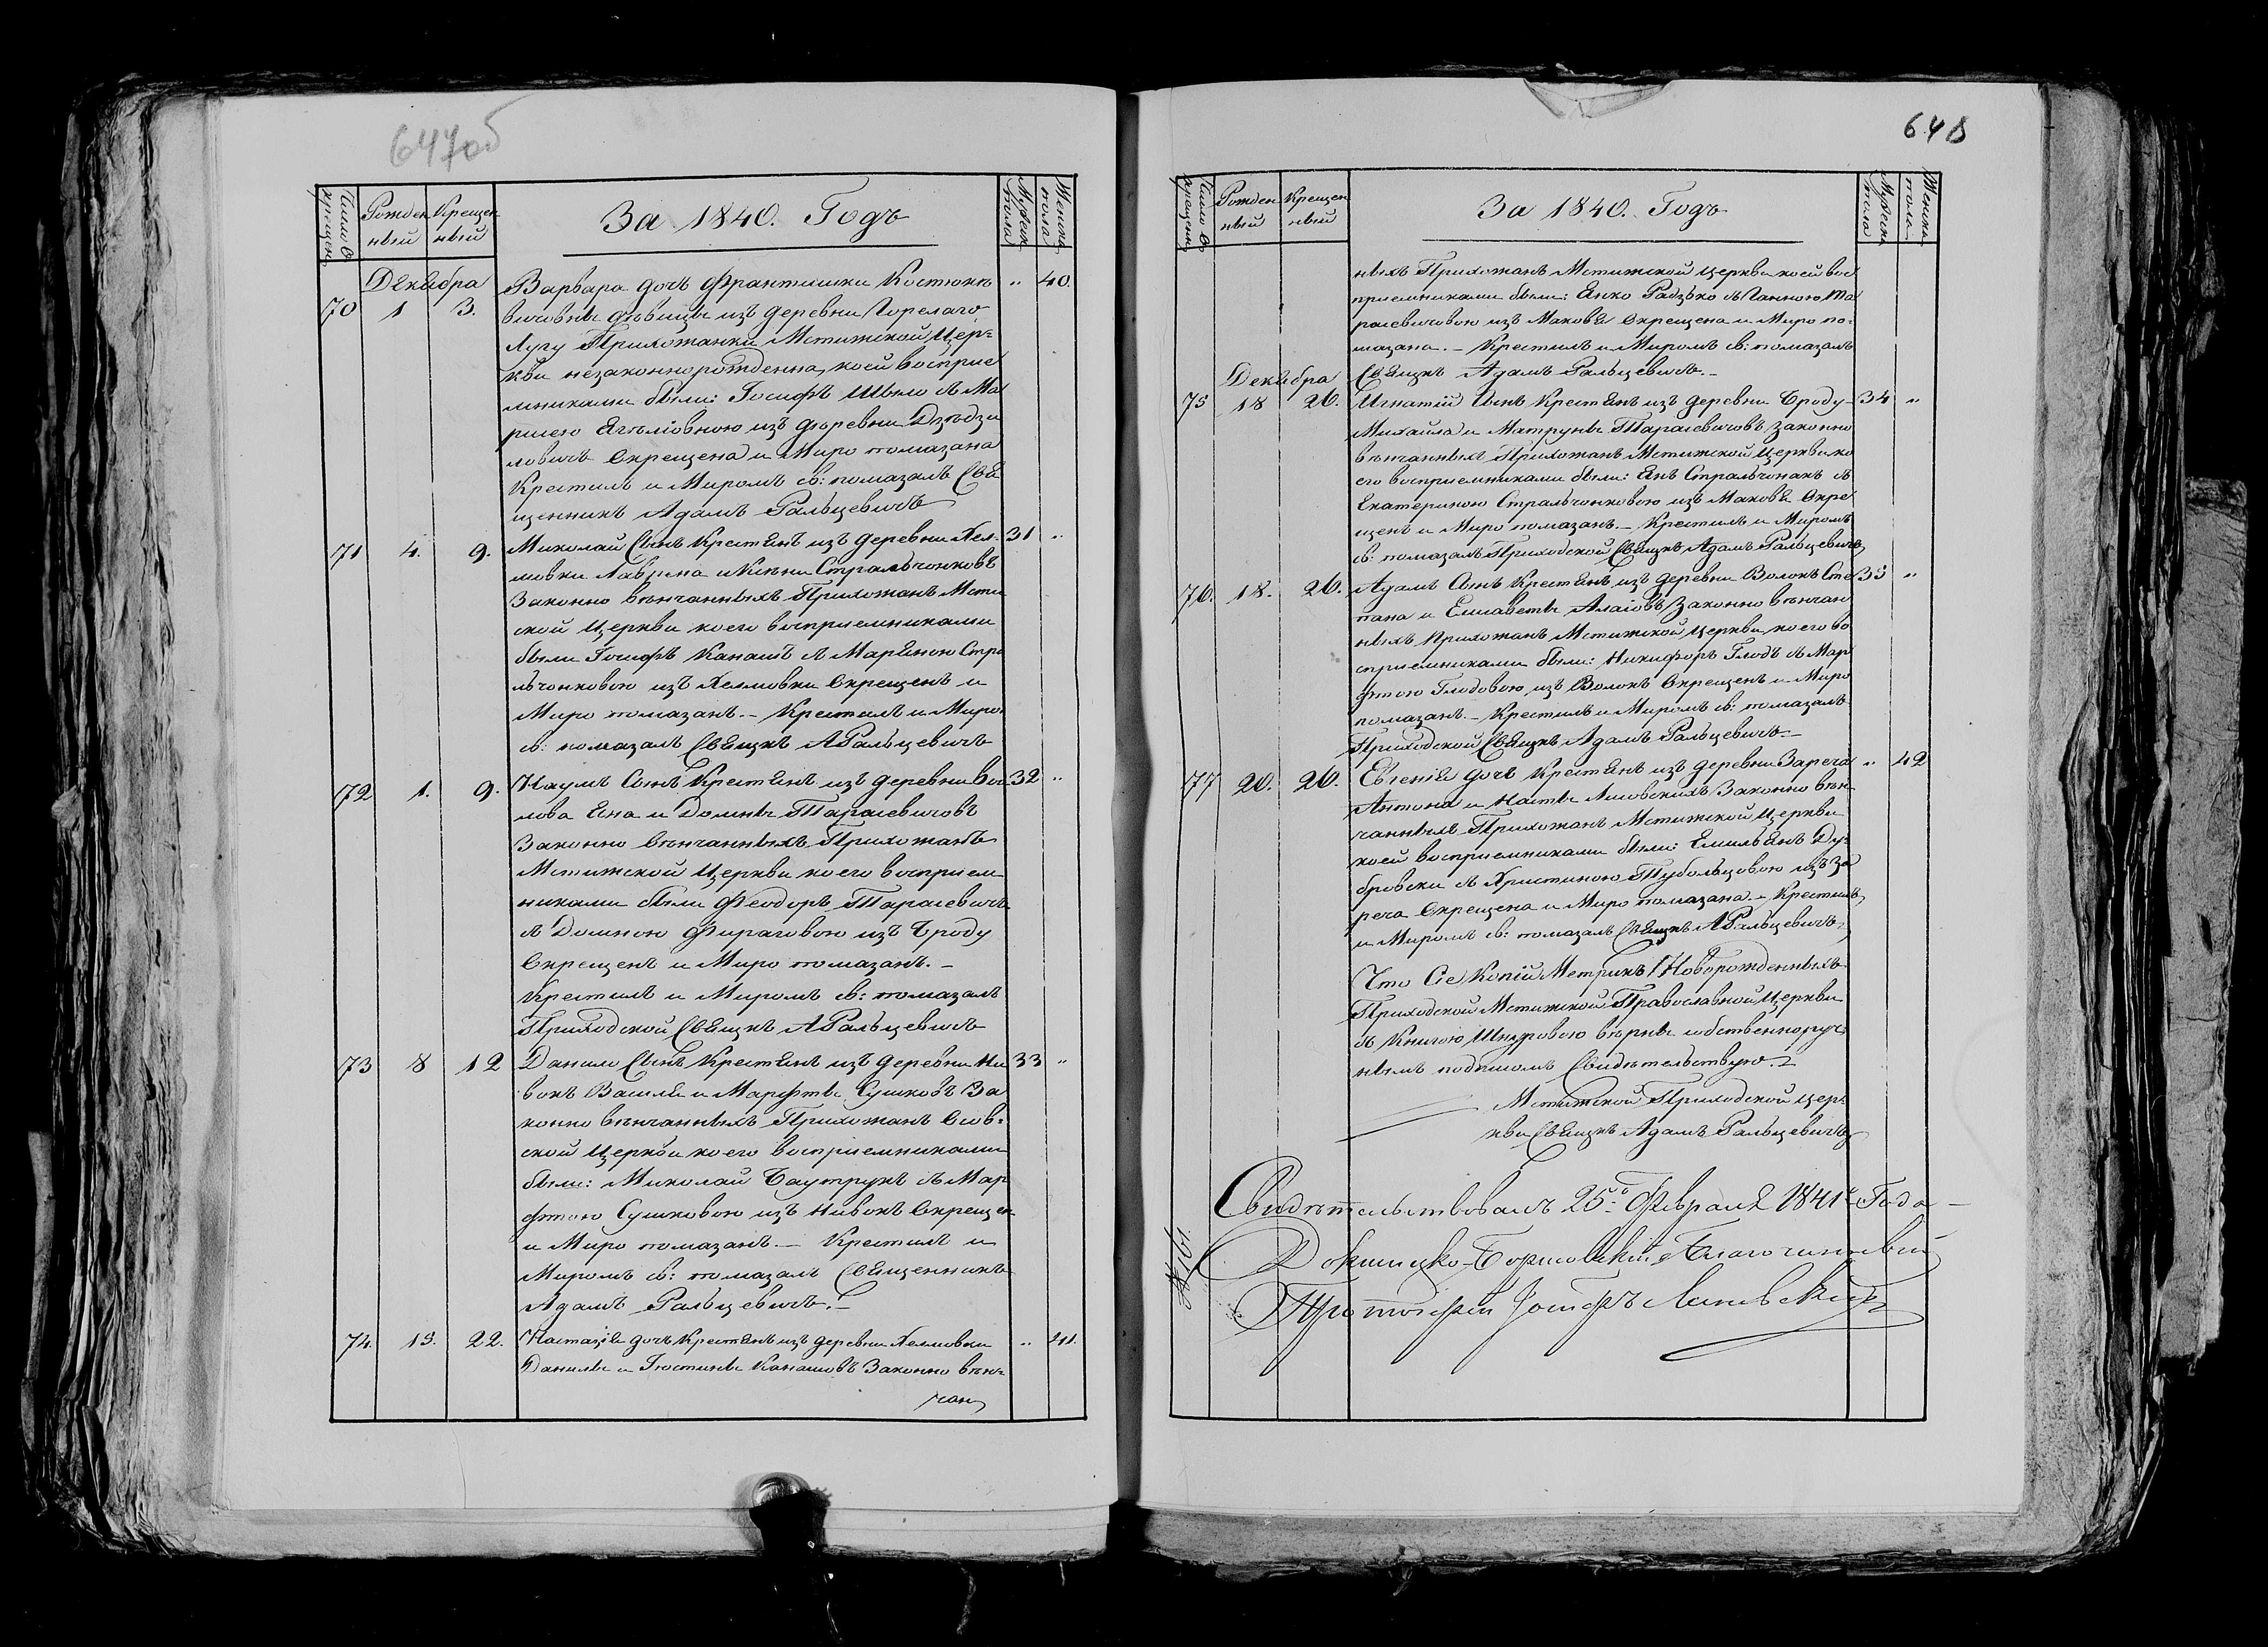 647об
Число кре щен
Рожден ный
Крещен ный
За 1840. Годъ
Мужеска пола
Женска пола
Декабра
70 1 3. Варвара дочъ Франтишки Костюке „ 40.
вичовны дѣвицы изъ деревни Горелаго
Лугу Прихожанки Мстижской Цер=
кви незаконнорожденна, коей восприе
мниками были: Іосифъ Шило съ Ма
рисею изъ деревни
ловичъ Окрещена и Миро помазана
Крестилъ и Миромъ св: помазалъ Свя
щенникъ Адамъ Ральцевичъ
71 4. 9. Миколай Сынъ Крестянъ изъ деревни Хел= 31 „
мовки Лаврина и Ксени Стральчонковъ
Законно вѣнчанныхъ Прихожанъ Мсти
ской Церкви коего восприемниками
были Іосифъ Канашъ съ Маряною Стра
льчонковою изъ Хелмовки Окрещенъ и
Миро помазанъ. – Крестилъ и Миро.
св: помазалъ Свящнъ АРальцевичъ
72 1. 9. Наумъ Сынъ Крестянъ изъ деревни Вои 32 „
лова Яна и Домны Тарасевичовъ
Законно вѣнчанныхъ Прихожанъ
Мстижской Церкви коего восприем
никами были Феодоръ Тарасевичъ
съ Домною Фираговою изъ Броду
Окрещенъ и Миро помазанъ. –
Крестилъ и Миромъ св: помазалъ
Приходской Свящнъ АРальцевичъ
73 8 12 Данило Сынъ Крестянъ изъ деревни Ни 33 „
вокъ Василя и Марфты Сушковъ За
конно вѣнчанныхъ Прихожанъ Осов=
ской Церкви коего восприемниками
были: Миколай Баутрукъ съ Мар
фтою Сушковою изъ Нивокъ Окрещен
и Миро помазанъ. – Крестилъ и
Миромъ св: помазалъ Священникъ
Адамъ Ральцевичъ. –
74. 15. 22. Настазія дочъ Крестянъ изъ деревни Хелмовки „ 41.
Данилы и Іюстины Канашовъ Законно вѣн=
чан
648
Число кре щен
Рожден ный
Крещен ный
За 1840. Годъ
Мужеска пола
Женска пола
ныхъ Прихожанъ Мстижской церкви коей вос
приемниками были: Янко Радзько съ Ганною Та
расевичовою изъ Маковя Окрещена и Миро по=
мазана. – Крестилъ и Миромъ св: помазалъ
Свящнъ Адамъ Ральцевичъ. –
Декабра
75 18 26. Игнатій Сынъ Крестянъ изъ деревни Броду 34 „
Михайла и Матруны Тарасевичовъ законно
вѣнчанныхъ Прихожанъ Мстижской Церкви ко
его восприемниками были: Янъ Стральчонакъ съ
Екатериною Стральчонковою изъ Маковя Окре
щенъ и Миро помазанъ. – Крестилъ и Миромъ
св: помазалъ Приходской Свящнъ Адамъ Ральцевичъ
76. 18. 26. Адамъ Сынъ Крестянъ изъ деревни Волокъ Сте 35 „
пана и Елисаветы законно вѣнчан
ныхъ Прихожанъ Мстижской Церкви коего во
сприемниками были: Никифоръ Глодъ съ Мар
фтою Глодовою изъ Волокъ Окрещенъ и Миро
помазанъ. – Крестилъ и Миромъ св: помазалъ
Приходской Свящнъ Адамъ Ральцевичъ. –
77 20. 26. Евгенія дочъ Крестянъ изъ деревни Зареча „ 42
Антона и Насты Лисовскихъ Законно вѣн
чанныхъ Прихожанъ Мстижской Церкви
коей восприемниками были: Емильянъ Ду=
бровски съ Христиною изъ За
реча Окрещена и Миро помазана. – Крестилъ
и Миромъ св: помазалъ Свящнъ АРальцевичъ
Что Сіе Копіи Метрикъ Новорожденныхъ
Приходской Мстижской Православной Церкви
съ Книгою Шнуровою вѣрны собственноруч
нымъ подписомъ Свидѣтельствую. –
Мстижской Приходской Цер=
кви Свящнъ Адамъ Ральцевичъ
Свидѣтельствовалъ 25го Февраля 1841го Года –
Докшицко-Борисовскій Благочинный
Протоіерей Іосифъ